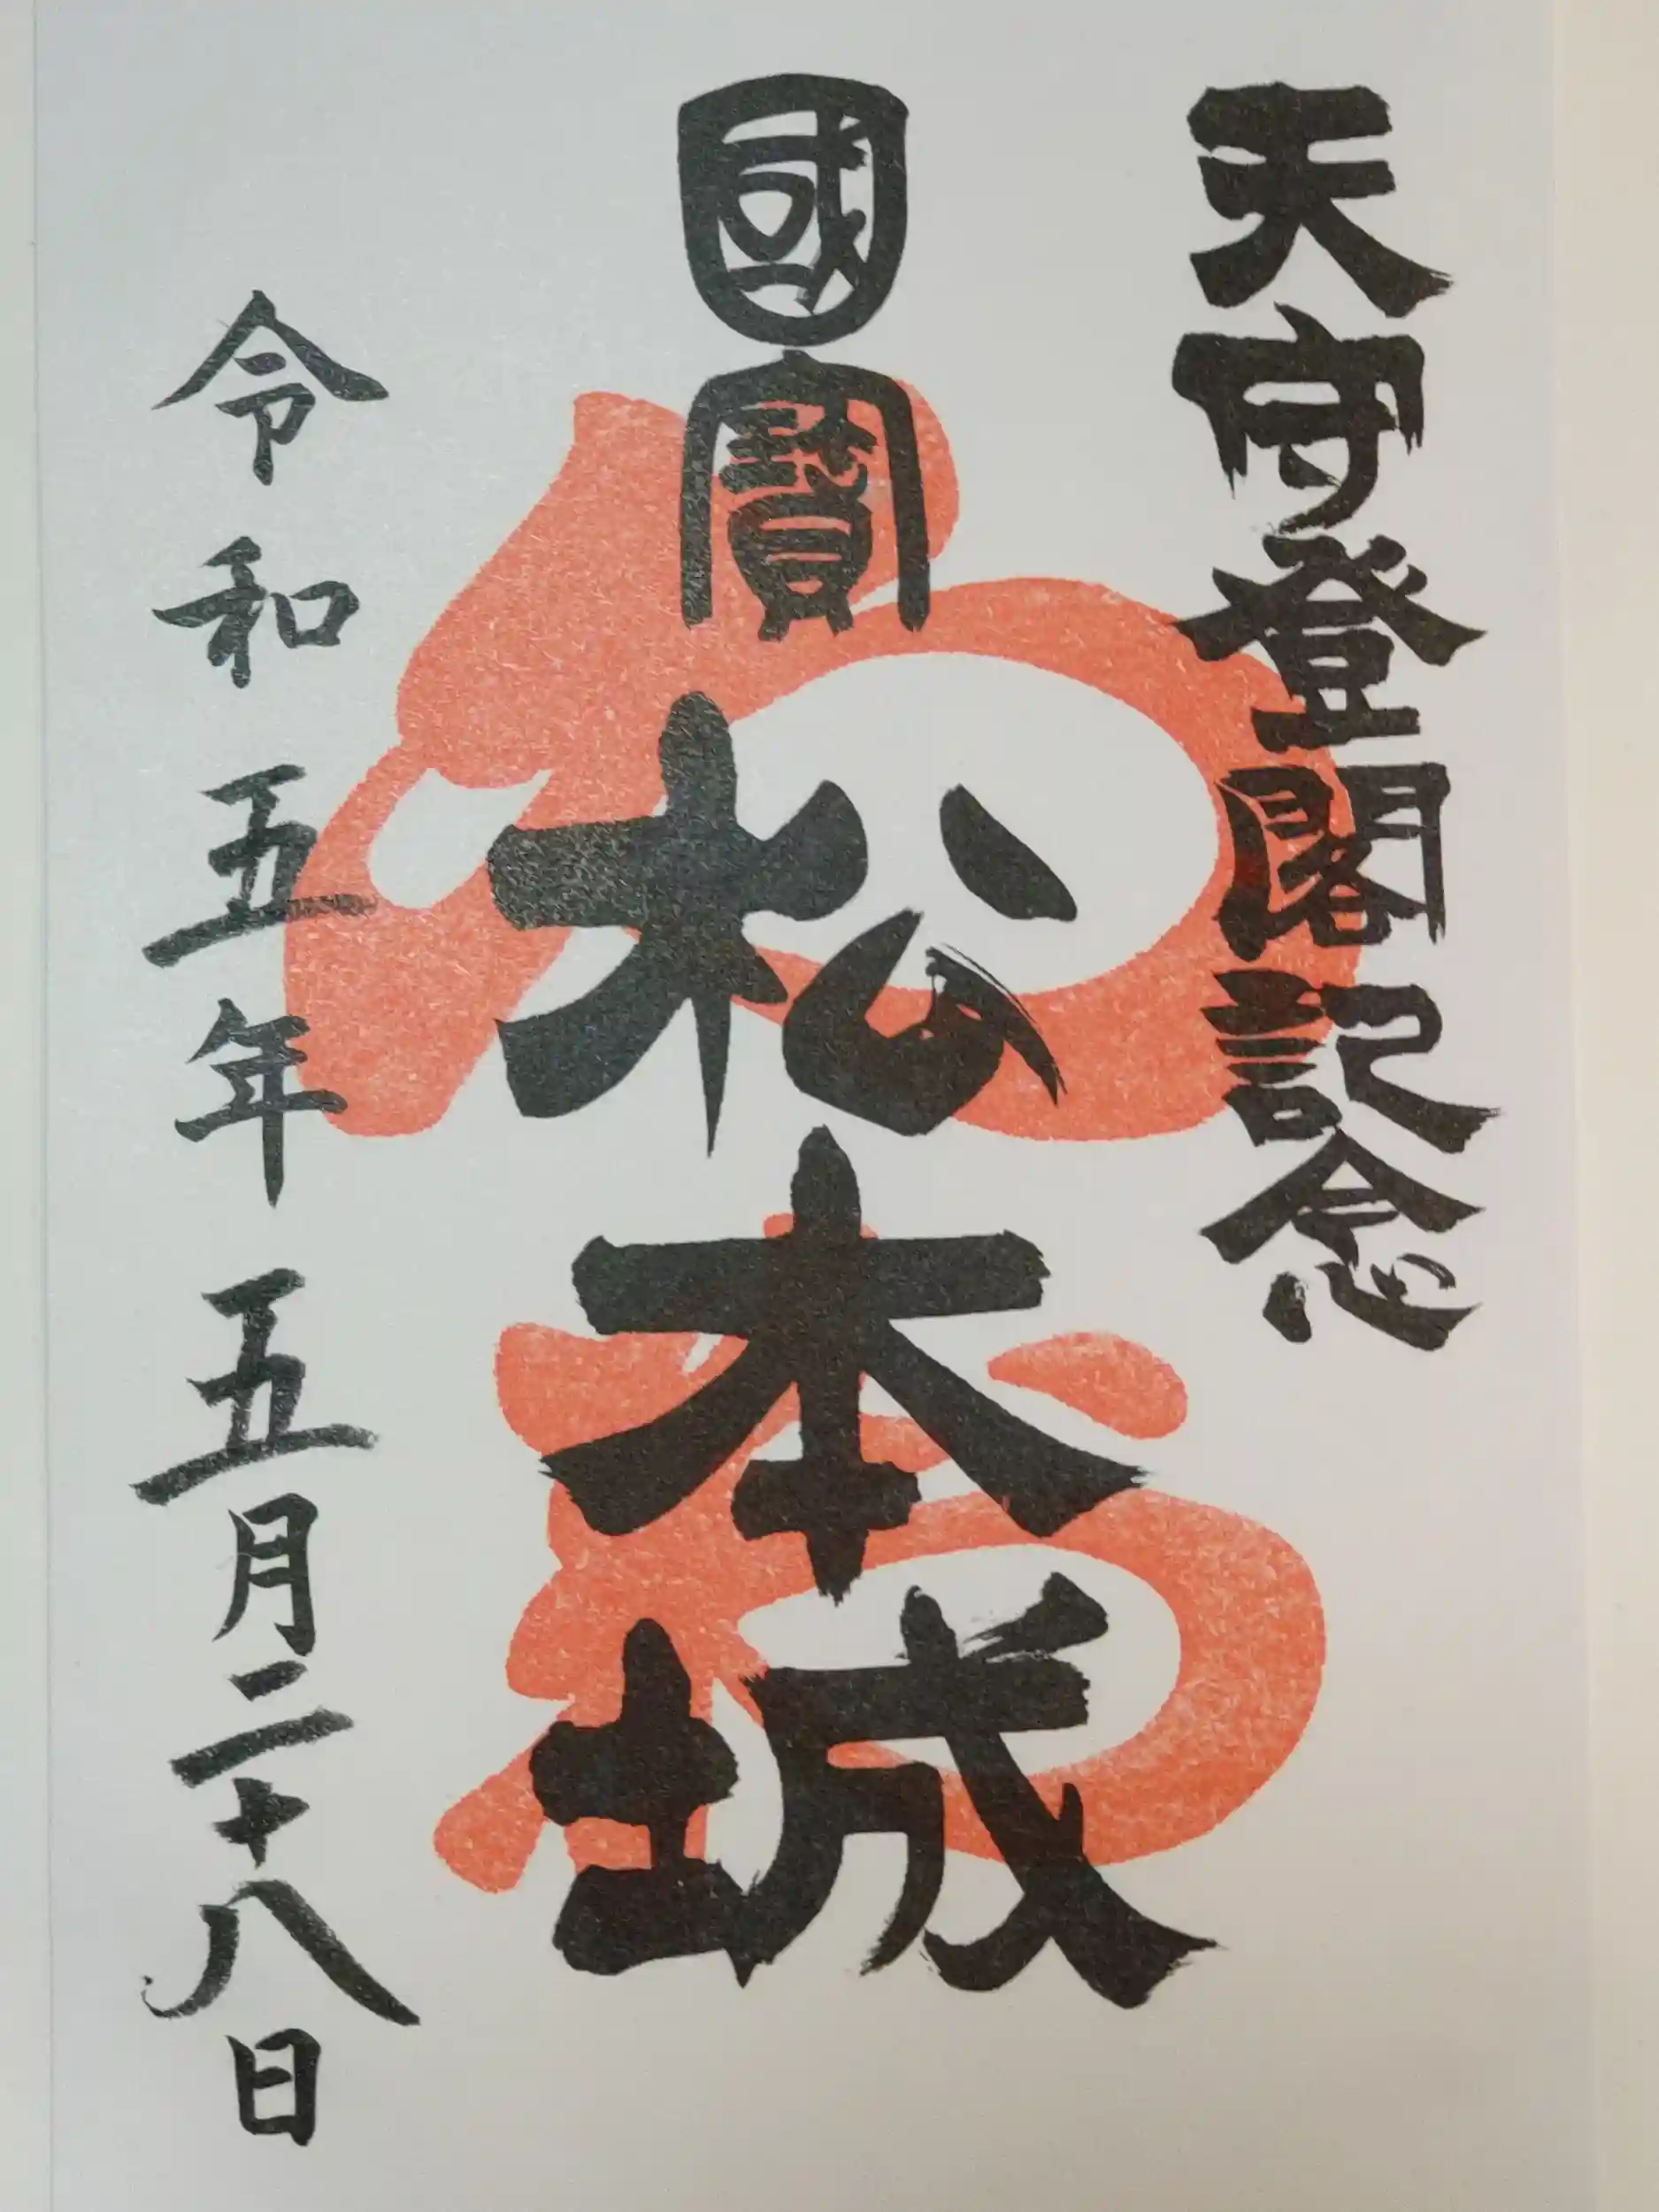 天守登閣記念
國寶 松本城
令和五年 五月二十八日